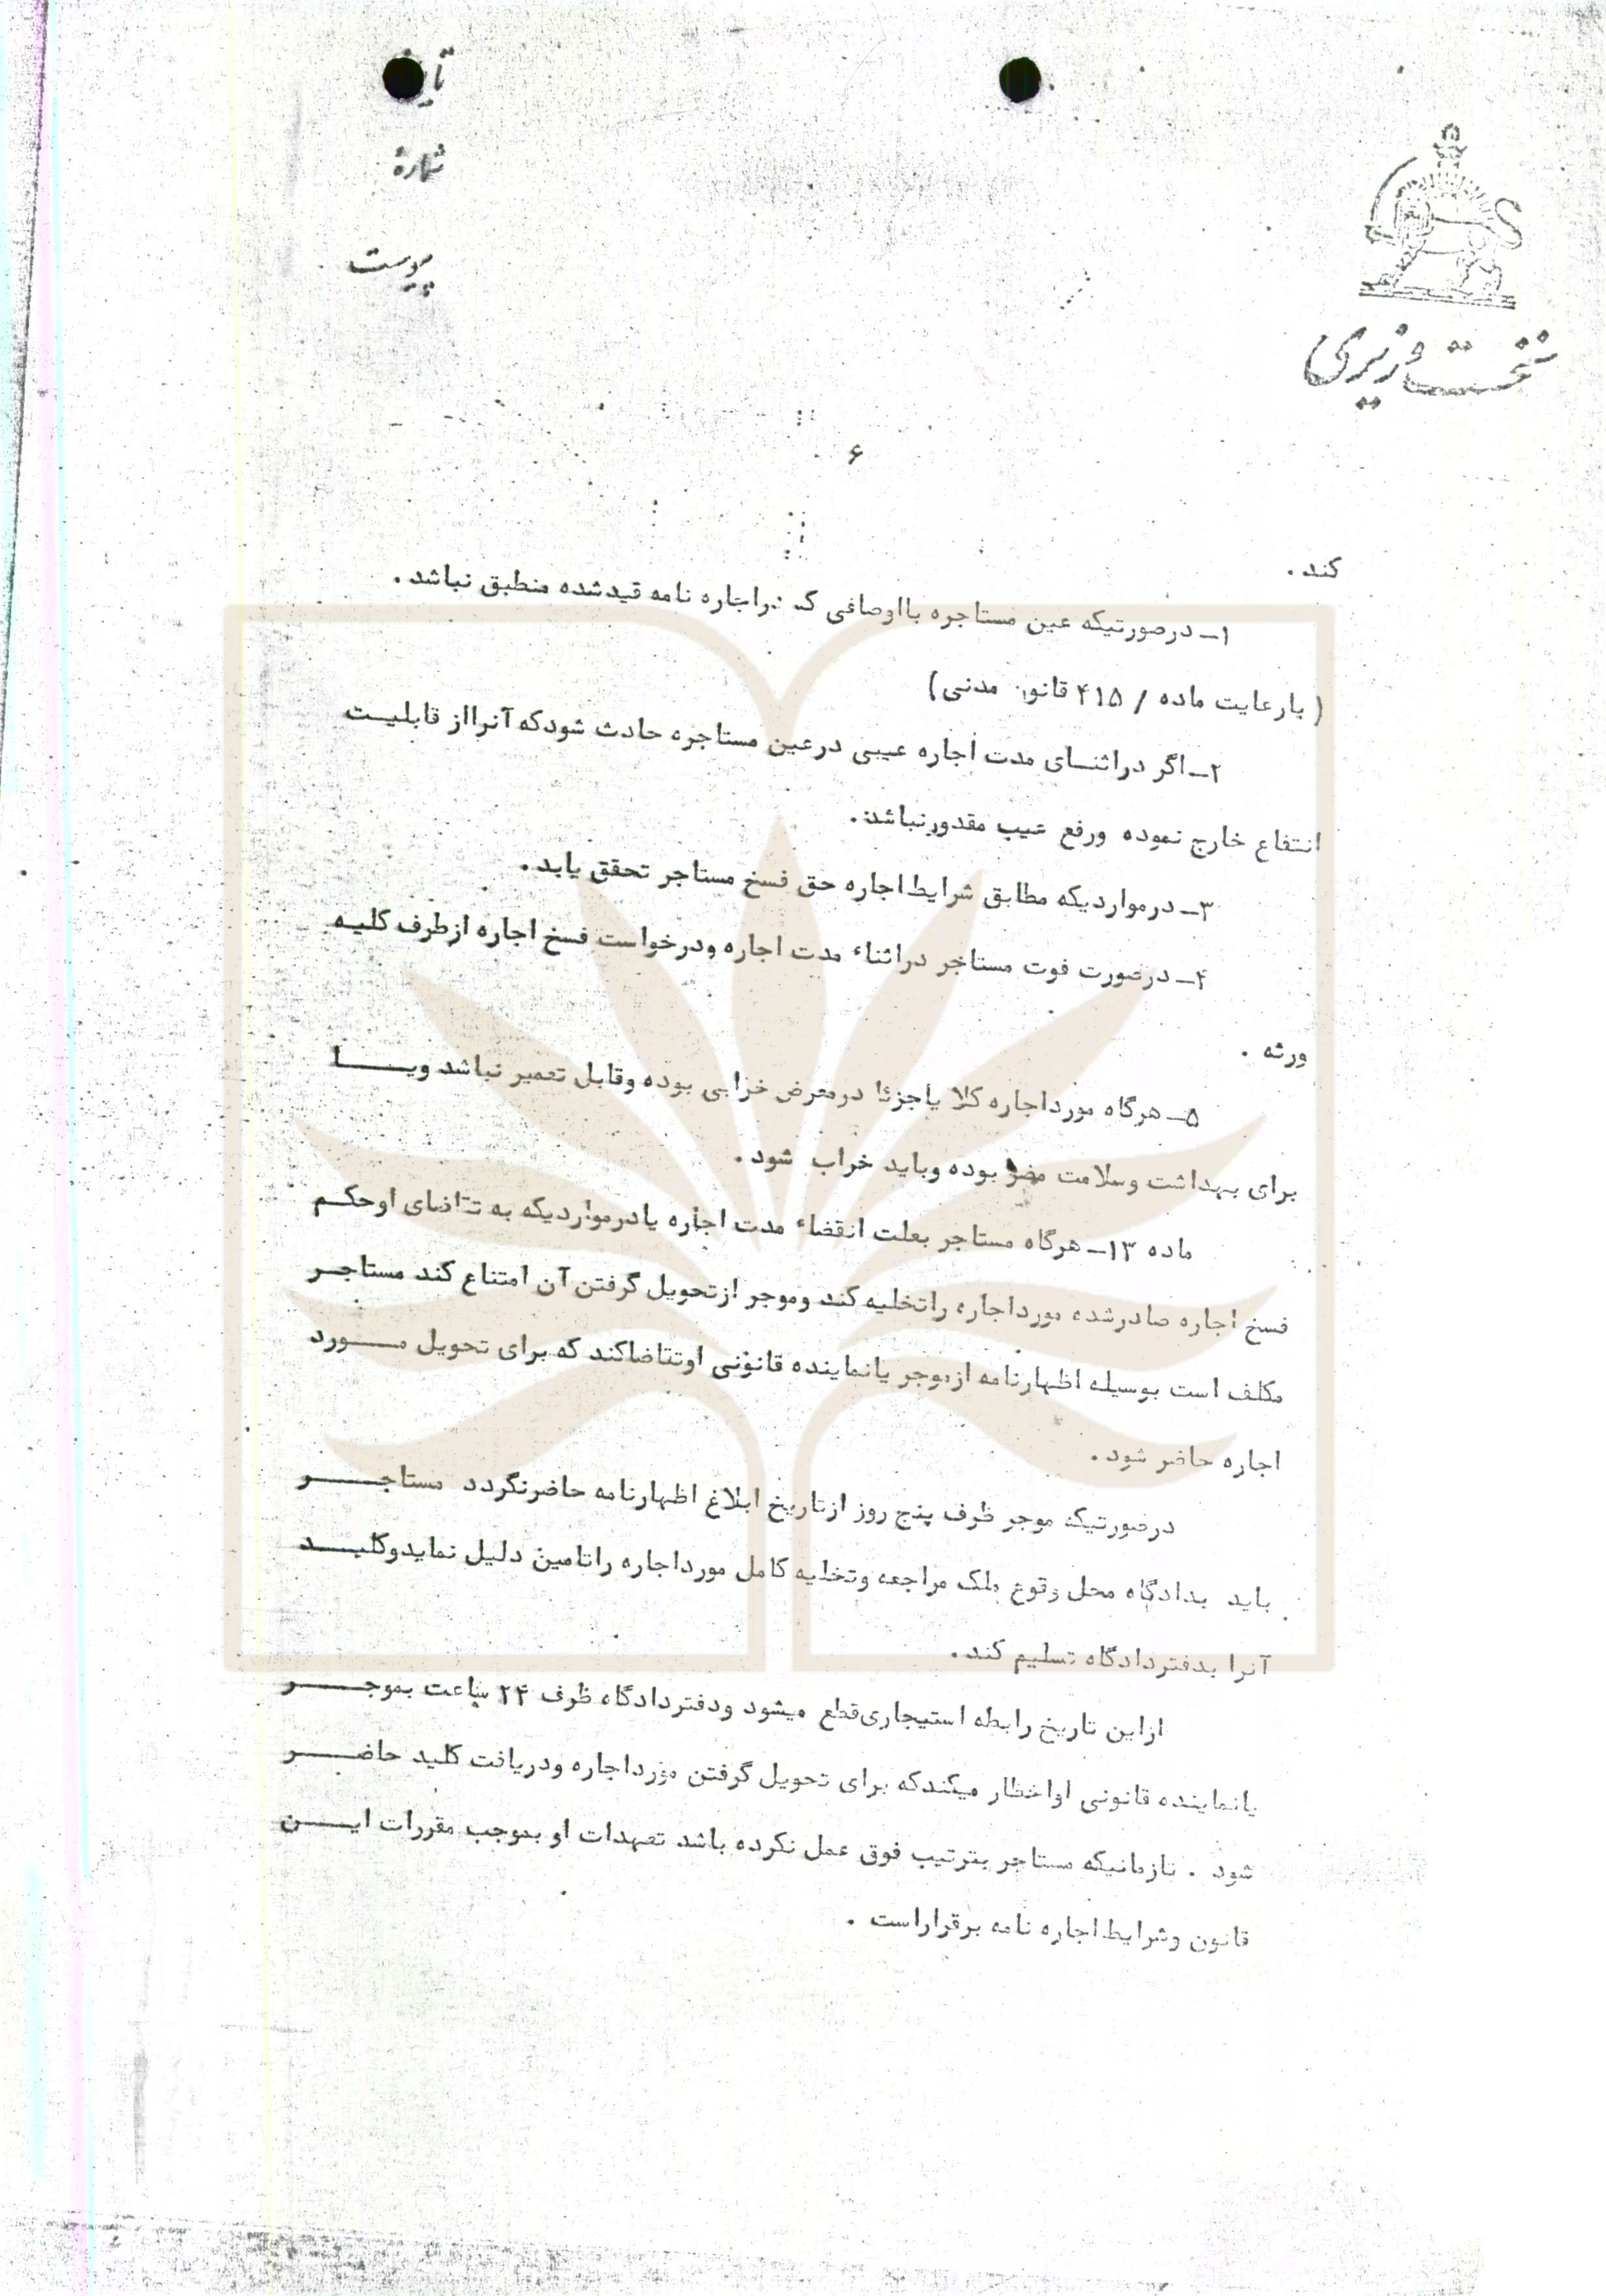 نخست وزیری
تاریخ
شماره
پیوست
۶
کند .
۱ـ درصورتیکه عین مستاجره بااوصافی که دراجاره نامه قیدشده منطبق نباشد .
( بارعایت ماده / ۴۱۵ قانون مدنی )
۲ـ اگر دراثنای مدت اجاره عیبی درعین مستاجره حادث شودکه آنرااز قابلیت
انتفاع خارج نموده ورفع عیب مقدورنباشد .
۳ـ درمواردیکه مطابق شرایط اجاره حق فسخ مستاجر تحقق یابد .
۴ـ درصورت فوت مستاجر دراثناء مدت اجاره ودرخواست فسخ اجاره ازطرف کلیه
ورثه .
۵ـ هرگاه مورداجاره کلا یاجزئا درمعرض خرابی بوده وقابل تعمیر نباشد ویا
برای بهداشت وسلامت مضر بوده وباید خراب شود .
ماده ۱۳ـ هرگاه مستاجر بعلت انقضاء مدت اجاره یادرمواردیکه به تقاضای اوحکم
فسخ اجاره صادرشده مورداجاره راتخلیه کند وموجر ازتحویل گرفتن آن امتناع کند مستاجر
مکلف است بوسیله اظهارنامه ازموجر یانماینده قانونی اوتقاضاکند که برای تحویل مورد
اجاره حاضر شود .
درصورتیکه موجر ظرف پنج روز ازتاریخ ابلاغ اظهارنامه حاضرنگردد مستاجر
باید بدادگاه محل وقوع ملک مراجعه وتخلیه کامل مورداجاره راتامین دلیل نمایدوکلید
آنرا بدفتردادگاه تسلیم کند .
ازاین تاریخ رابطه استیجاری قطع میشود ودفتردادگاه ظرف ۲۴ ساعت بموجر
یانماینده قانونی اواخطار میکندکه برای تحویل گرفتن مورداجاره ودریافت کلید حاضر
شود . تازمانیکه مستاجر بترتیب فوق عمل نکرده باشد تعهدات او بموجب مقررات این
قانون وشرایط اجاره نامه برقراراست .